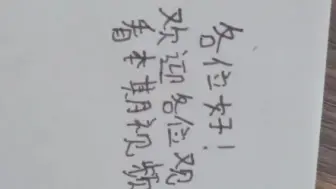 各位好！
欢迎各位观
看本期视频